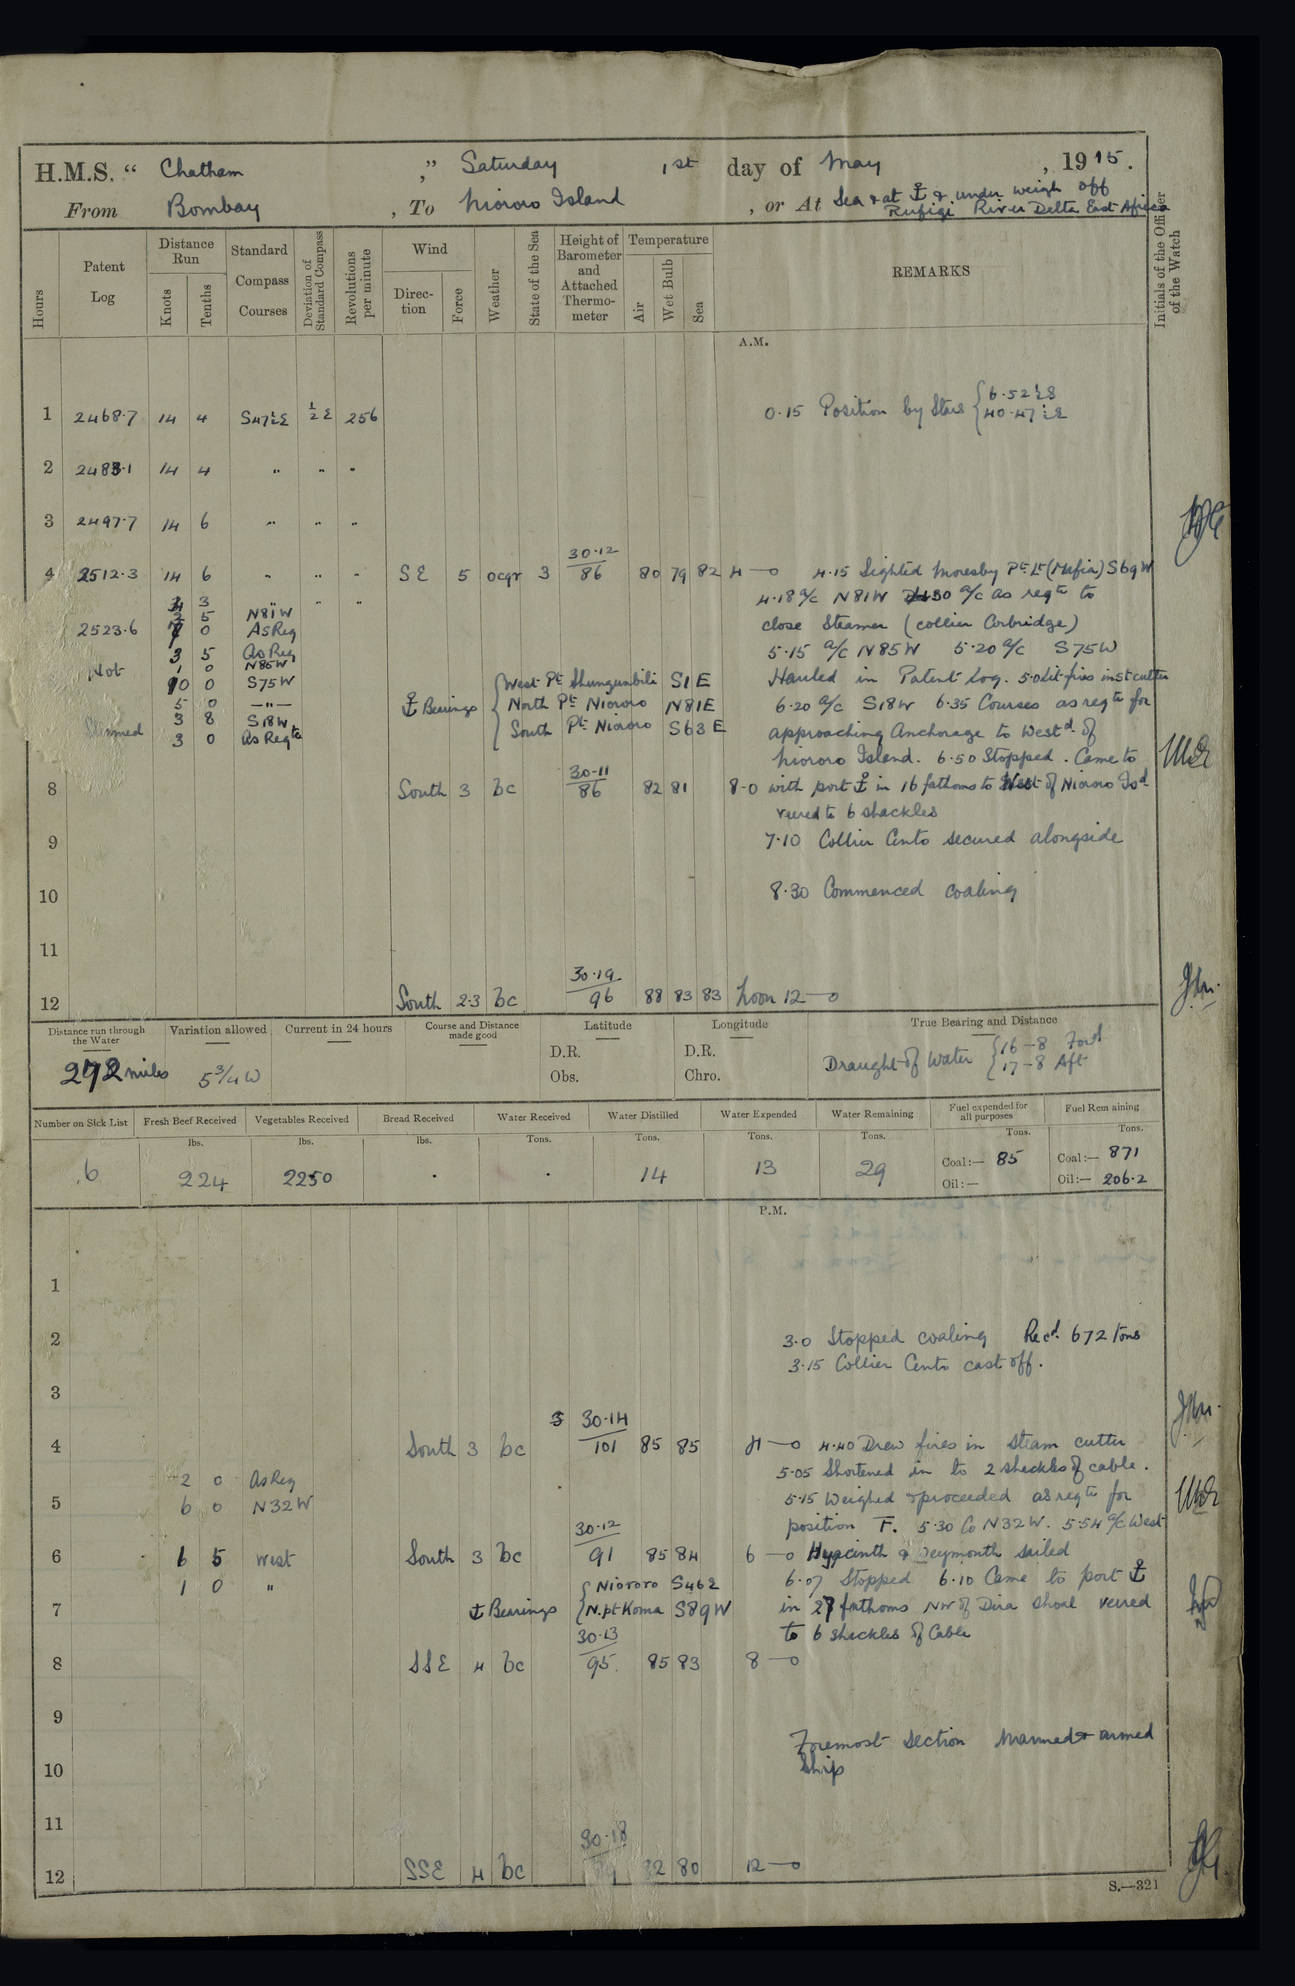 H.M.S. “ Chatham ” Saturday , 1st day of May , 1915.
From Bombay , To Niororo Island , or At Sea & at ⚓ & under weigh off
Rufigi River Delta East Africa
Hours
Patent Log
Distance Run
Knots
Tenths
Standard Compass Courses
Deviation of Standard Compass
Revolutions per minute
Wind
Direction
Force
Weather
State of the Sea
Height of Barometer and Attached Thermometer
Temperature
Air
Wet Bulb
Sea
REMARKS
Initials of the Officer of the Watch
A.M.
0.15 Position by Stars { 6.52½S
40.47½E
1 2468.7 14 4 S47½E ½E 256
2 2483.1 14 4 " " "
3 2497.7 14 6 " " "
30.12
4 2512.3 14 6 " " " SE 5 ocqr 3 86 80 79 82 4—0 4.15 Sighted Moresby Pt Lt (Mafia) S69W
4 3 " "
4.18 a/c N81W 4.30 a/c as reqte to
2 5 N81W
2523.6 7 0 As Req close Steamer (collier Corbridge)
3 5 As Req 5.15 a/c N85W 5.20 a/c S75W
Not 1 0 N85W
10 0 S75W ⚓ Bearings { West Pt Shungumbili S1E Hauled in Patent Log. 5.0 Lit fires in st cutter
5 0 —"— North Pt Niororo N81E 6.20 a/c S18W 6.35 Courses as reqte for
Streamed 3 8 S18W South Pt Niororo S63E approaching Anchorage to Westd of
3 0 As Reqte
Niororo Island. 6.50 Stopped. Came to
30.11
8 South 3 bc 86 82 81 8-0 with port ⚓ in 16 fathoms to West of Niororo Isd
veered to 6 shackles
9 7.10 Collier Cento secured alongside
10 8.30 Commenced coaling
11
30.19
12 South 2.3 bc 96 88 83 83 Noon 12—0
Distance run through the Water
Variation allowed
Current in 24 hours
Course and Distance made good
Latitude
Longitude
True Bearing and Distance
D.R. D.R.
Obs. Chro.
272 miles 5¾W Draught of Water { 16-8 Ford
17-8 Aft
Number on Sick List
Fresh Beef Received
Vegetables Received
Bread Received
Water Received
Water Distilled
Water Expended
Water Remaining
Fuel expended for all purposes
Fuel Remaining
lbs. lbs. lbs. Tons. Tons. Tons. Tons. Tons. Tons.
6 224 2250 . . 14 13 29 Coal:— 85 Coal:— 871
Oil:— Oil:— 206.2
P.M.
1
2 3.0 Stopped coaling Recd. 672 Tons
3.15 Collier Cento cast off.
3
3 30.14
4 South 3 bc 101 85 85 4—0 4.40 Drew fires in steam cutter
2 0 As Req 5.05 Shortened in to 2 shackles of cable.
5 6 0 N32W 5.15 Weighed & proceeded as reqte for
position F. 5.30 Co N32W. 5.54 a/c West
30.12
6 6 5 West South 3 bc 91 85 84 6—0 Hyacinth & Weymouth sailed
1 0 " { Niororo S46E 6.07 Stopped 6.10 Came to port ⚓
7 ⚓ Bearings N. pt Koma S89W in 27 fathoms NW of Dira Shoal veered
to 6 shackles of Cable
30.13
8 SSE 4 bc 95. 85 83 8—0
9
Foremost Section Manned & armed
10 Ship
11
30.18
12 SSE 4 bc 82 80 12—0
S.—321